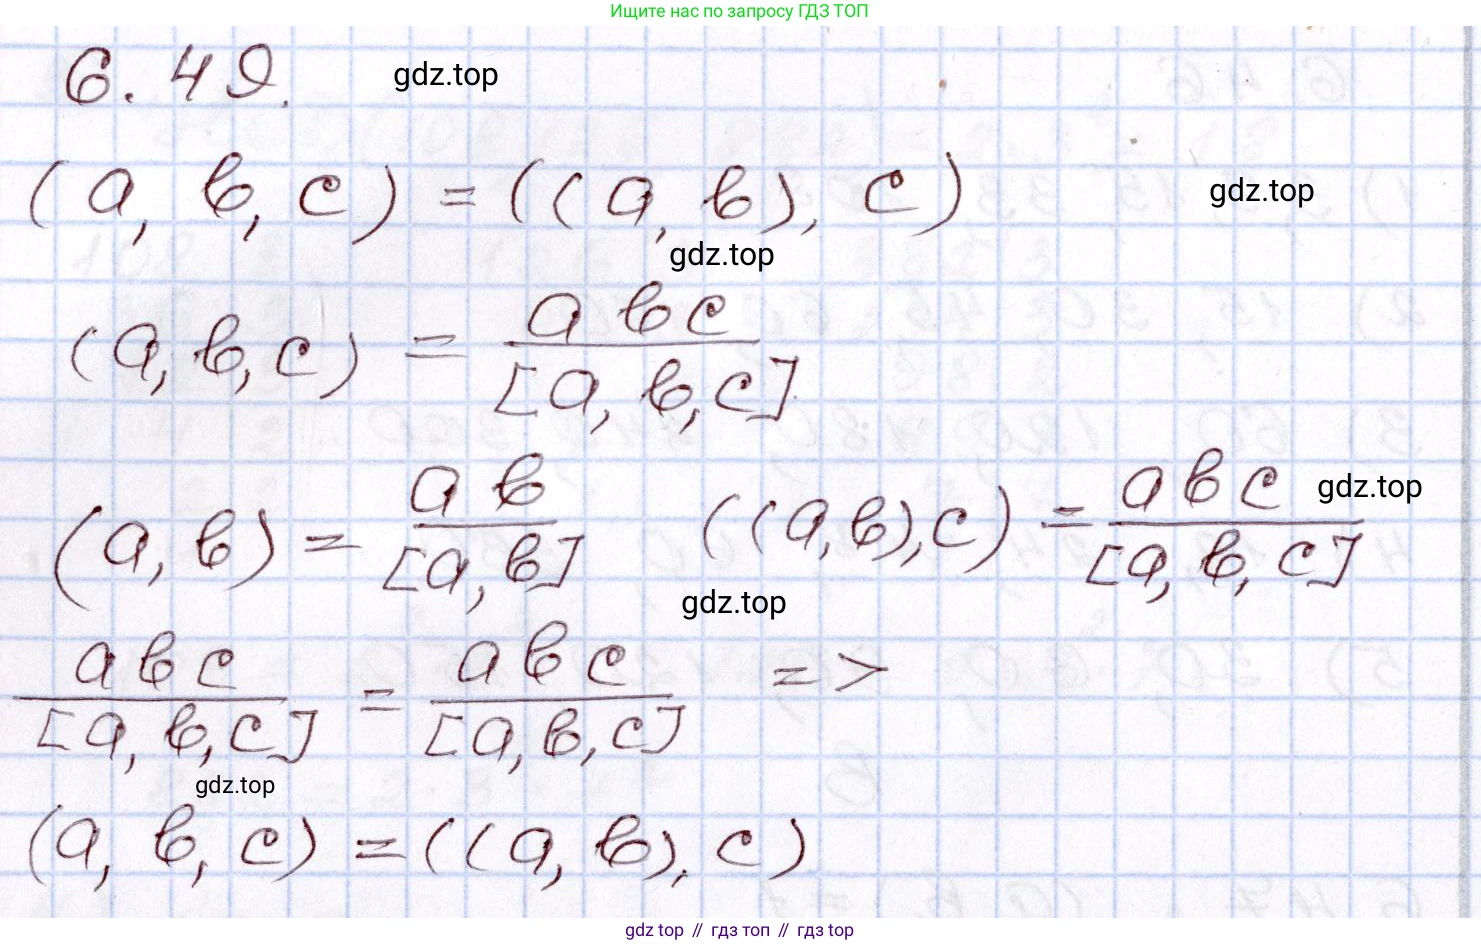 Ищите нас по запросу ГДЗ ТОП
6.49.
gdz.top
(a, в, c) = ((a, в), c)
gdz.top
gdz.top
(a, в, c) = aвc / [a, в, c]
(a, в) = aв / [a, в] ((a, в), c) = aвc / [a, в, c]
gdz.top
gdz.top
aвc / [a, в, c] = aвc / [a, в, c] =>
gdz.top
(a, в, c) = ((a, в), c)
gdz top // гдз топ // гдз top